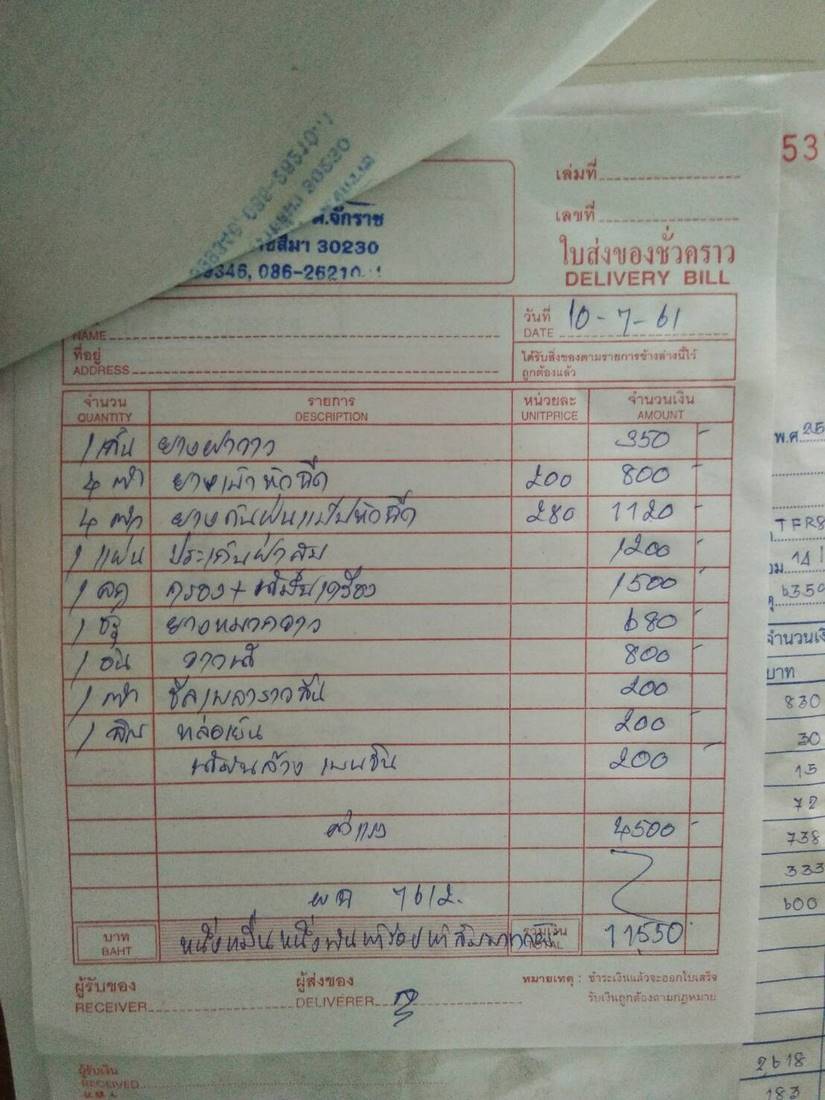 53
เล่มที่
เลขที่
ต.จักราช
สีมา 30230
346, 086-26210
ใบส่งของชั่วคราว
DELIVERY BILL
NAME
วันที่ 10-7-61
DATE
ที่อยู่
ADDRESS
ได้รับสิ่งของตามรายการข้างล่างนี้ไว้
ถูกต้องแล้ว
จำนวน รายการ หน่วยละ จำนวนเงิน
QUANTITY DESCRIPTION UNITPRICE AMOUNT
1 เส้น ยางฝาวาว 350 -
4 ตัว ยางเบ้าหัวฉีด 200 800 -
4 ตัว ยางกันฝุ่นแป๊ปหัวฉีด 280 1120 -
1 แผ่น ประเก็นฝาสูบ 1200 -
1 ลูก กรอง+น้ำมันเครื่อง 1500 -
1 ชุด ยางหมวกวาว 680 -
1 อัน วาวน้ำ 800 -
1 ตัว ซีลเพลาราวลิ้น 200
1 หล่อเย็น 200 -
น้ำมันล้าง เบนซิน 200 -
ค่าแรง 4500 -
7612.
บาท หนึ่งหมื่นหนึ่งพันห้าร้อยห้าสิบบาทถ้วน รวมเงิน 11550
BAHT TOTAL
ผู้รับของ ผู้ส่งของ
RECEIVER DELIVERER
หมายเหตุ : ชำระเงินแล้วจะออกใบเสร็จ
รับเงินถูกต้องตามกฎหมาย
พ.ศ. 25
TFR8
14
6350
จำนวนเงิ
บาท
830
30
15
72
738
333
600
2618
183
ผู้รับเงิน
RECEIVED